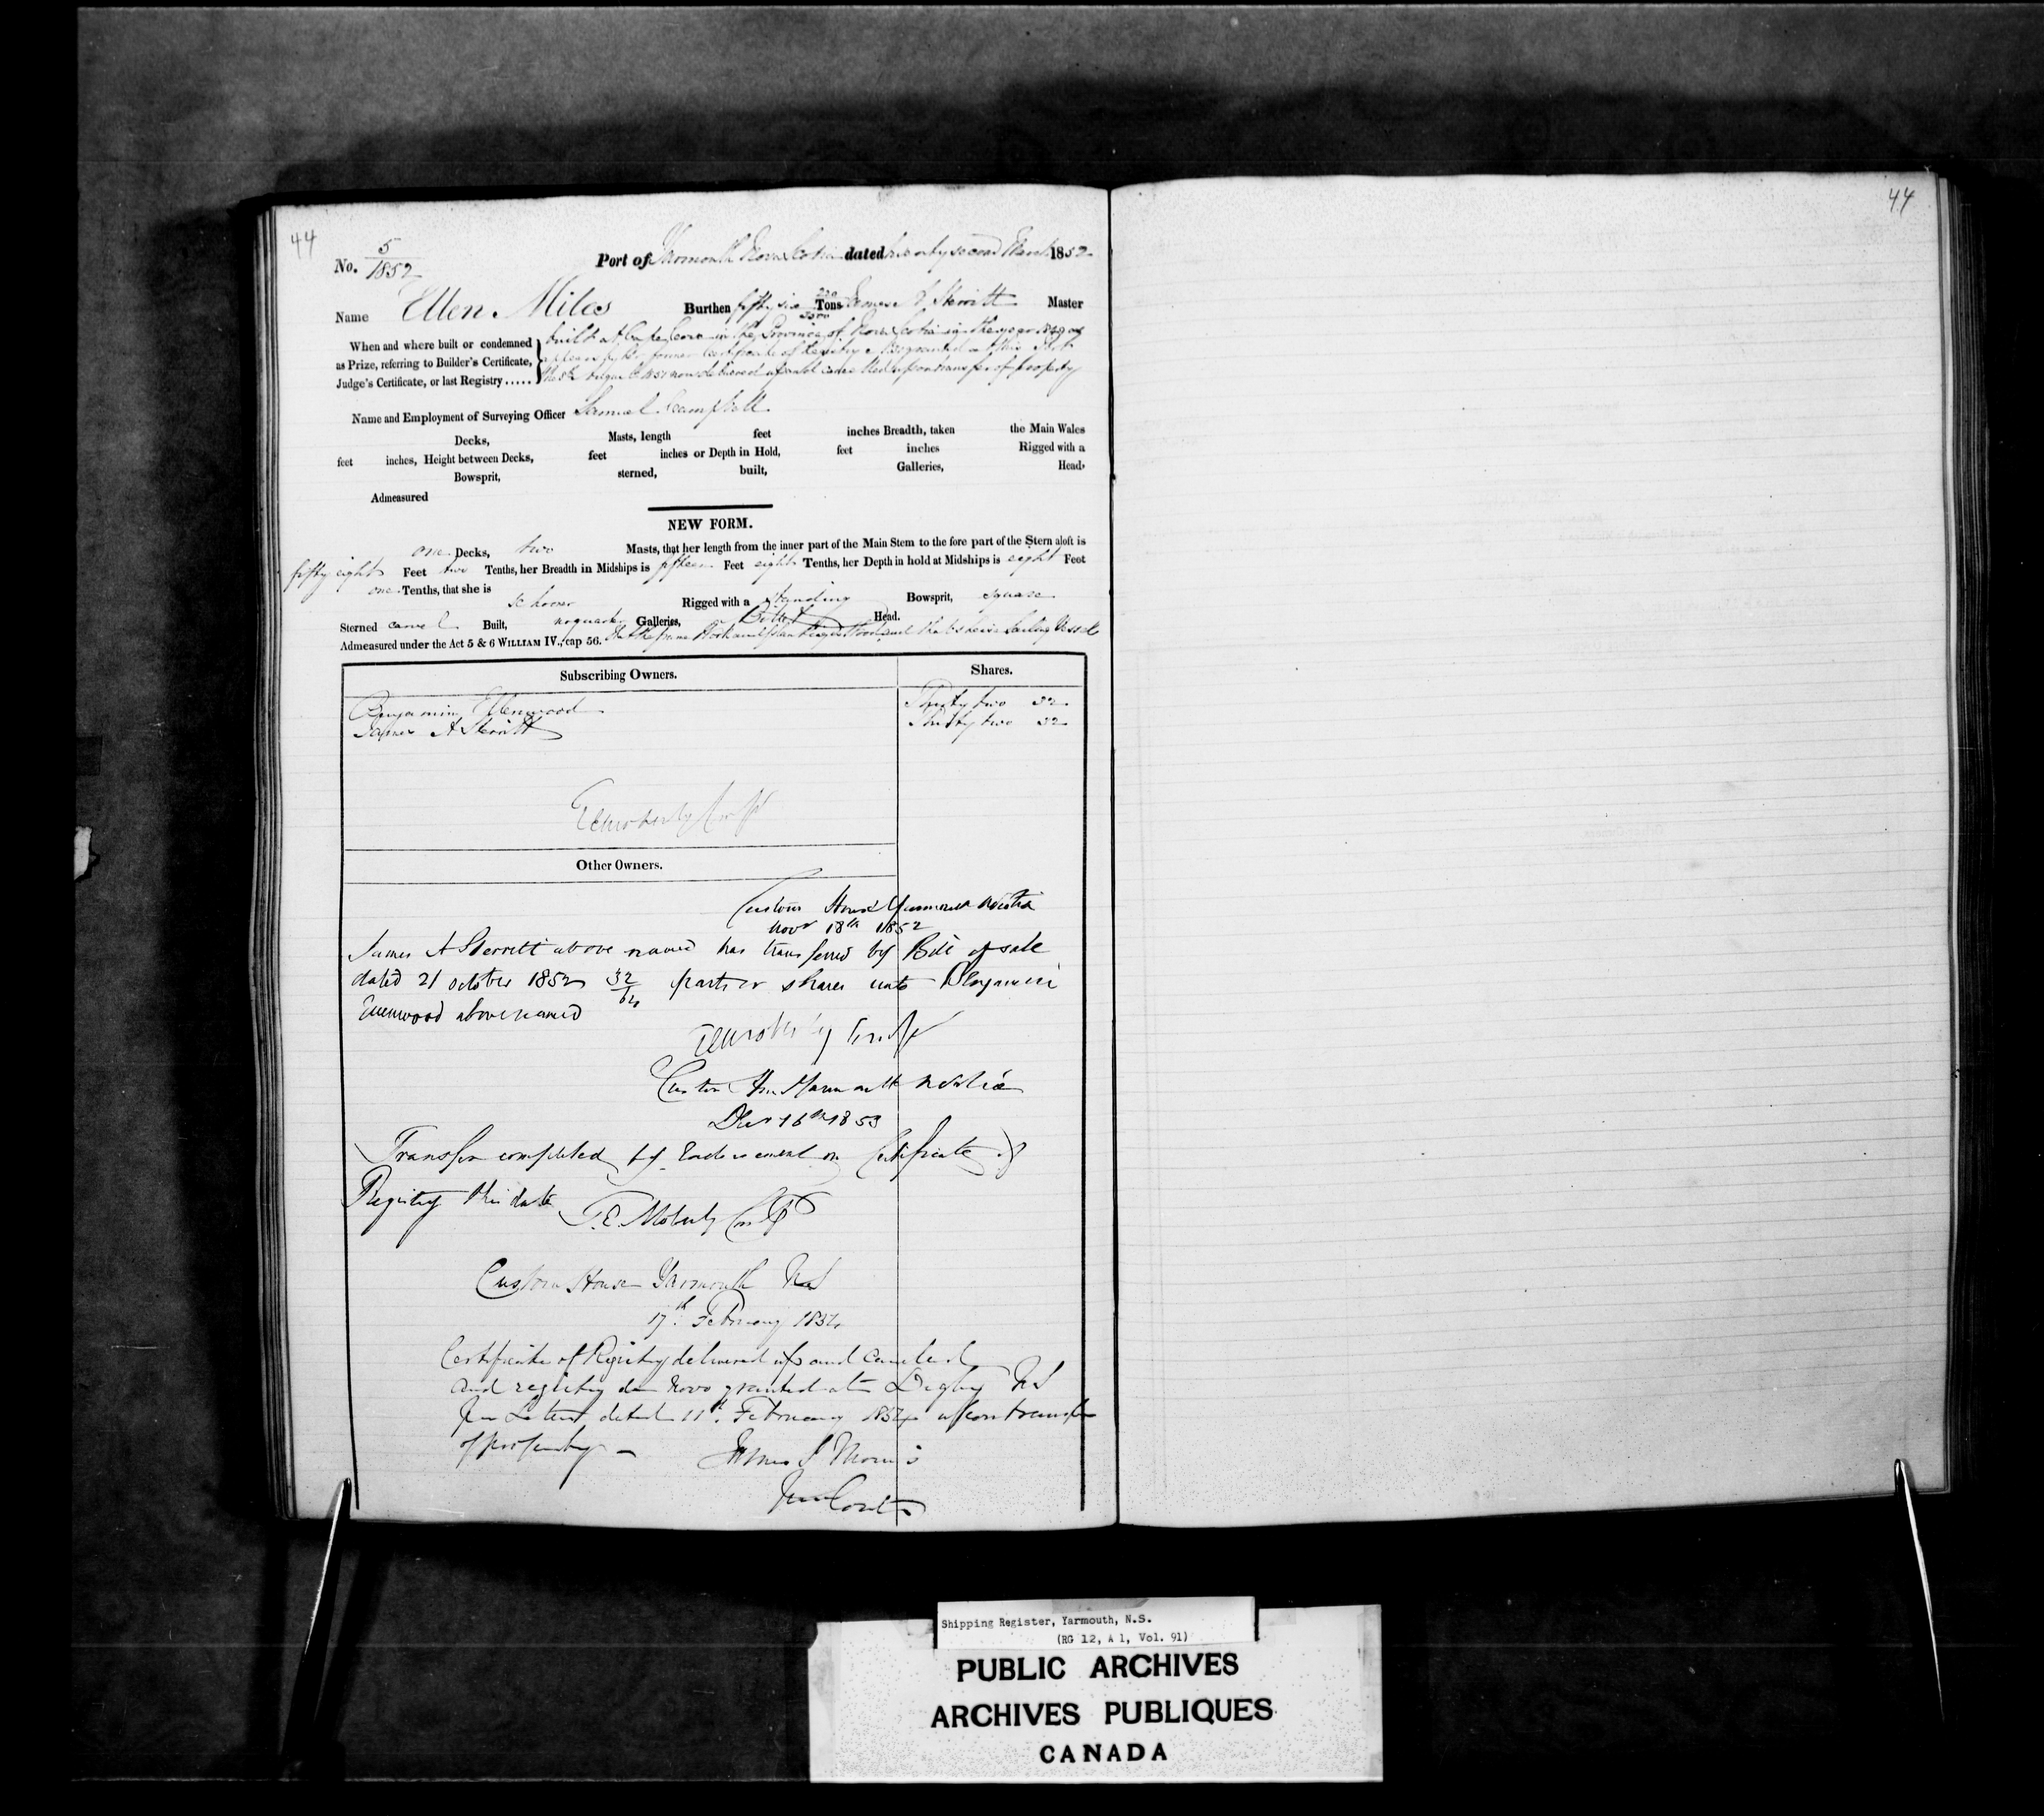 44
44
No. 5/1852
Port of Yarmouth Nova Scotia dated twenty second March 1852
Name Ellen Miles Burthen fifty six 220/3500 Tons James A Sterritt Master
When and where built or condemned
as Prize, referring to Builder's Certificate,
Judge's Certificate, or last Registry.....
built at Cove in the Province of Nova Scotia in the year 1849 as
appears by former Certificate of Registry granted at this Port
1851 now delivered up and cancelled upon transfer of property
Name and Employment of Surveying Officer Samuel Campbell
Decks, Masts, length feet inches Breadth, taken the Main Wales
feet inches, Height between Decks, feet inches or Depth in Hold, feet inches Rigged with a
Bowsprit, sterned, built, Galleries, Head,
Admeasured
NEW FORM.
one Decks, two Masts, that her length from the inner part of the Main Stem to the fore part of the Stern aloft is
fifty eight Feet two Tenths, her Breadth in Midships is fifteen Feet eight Tenths, her Depth in hold at Midships is eight Feet
one Tenths, that she is
Schooner Rigged with a standing Bowsprit, square
Sterned carvel Built, no quarter Galleries, Billet Head.
Admeasured under the Act 5 & 6 WILLIAM IV., cap 56. that she is a Sailing Vessel
Subscribing Owners. Shares.
Benjamin Ellenwood Thirty two 32
James A Sterritt Thirty two 32
Other Owners.
Custom House Yarmouth NScotia
Novr 18th 1852
James A Sterritt above named has transferred by Bill of sale
dated 21 October 1852 32/64 parts or shares unto Benjamin
Ellenwood above named
Custom Hous Yarmouth NScotia
Decr 16th 1853
Transfer completed by Endorsement on Certificate of
Registry this date T.E. Moberly
Custom House Yarmouth NS
17th February 1854
Certificate of Registry delivered up and canceled
and registry de Novo granted at Digby NS
per Letter dated 11th February 1854 upon transfer
of property — James S Morris
Shipping Register, Yarmouth, N.S.
(RG 12, A 1, Vol. 91)
PUBLIC ARCHIVES
ARCHIVES PUBLIQUES
CANADA